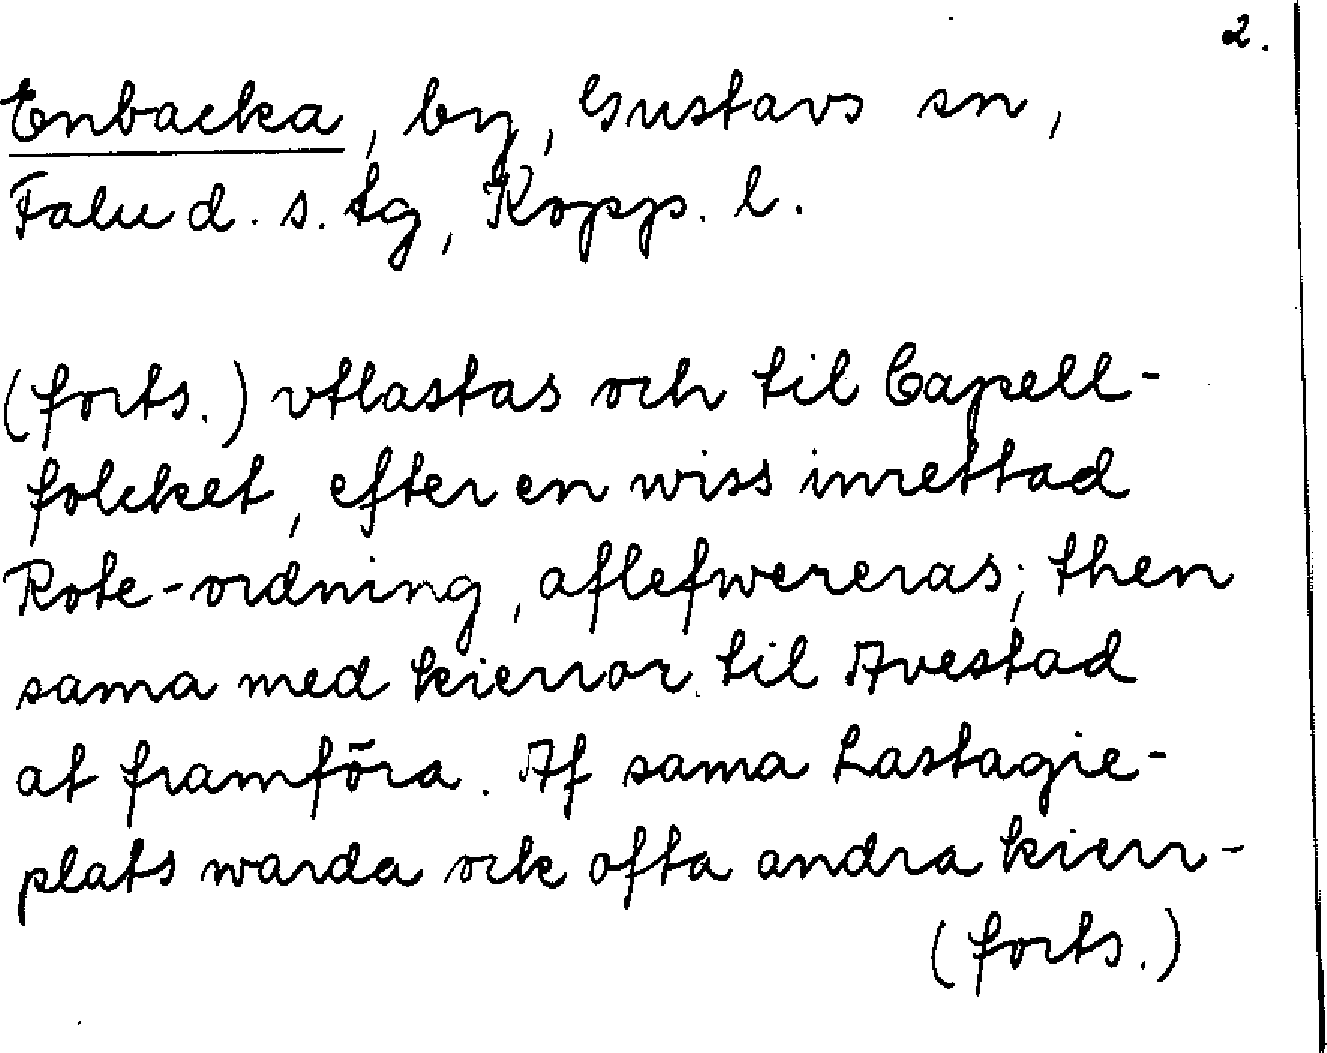 2.
Enbacka, by, Gustavs sn,
Falu d. s. tg, Kopp. l.
(forts.) vtlastas och til Capell-
folcket, efter en wiss inrettad
Rote-ordning, aflefwereras; then
sama med kierror til Avestad
at framföra. Af sama Lastagie-
plats warda ock ofta andra kierr-
(forts.)